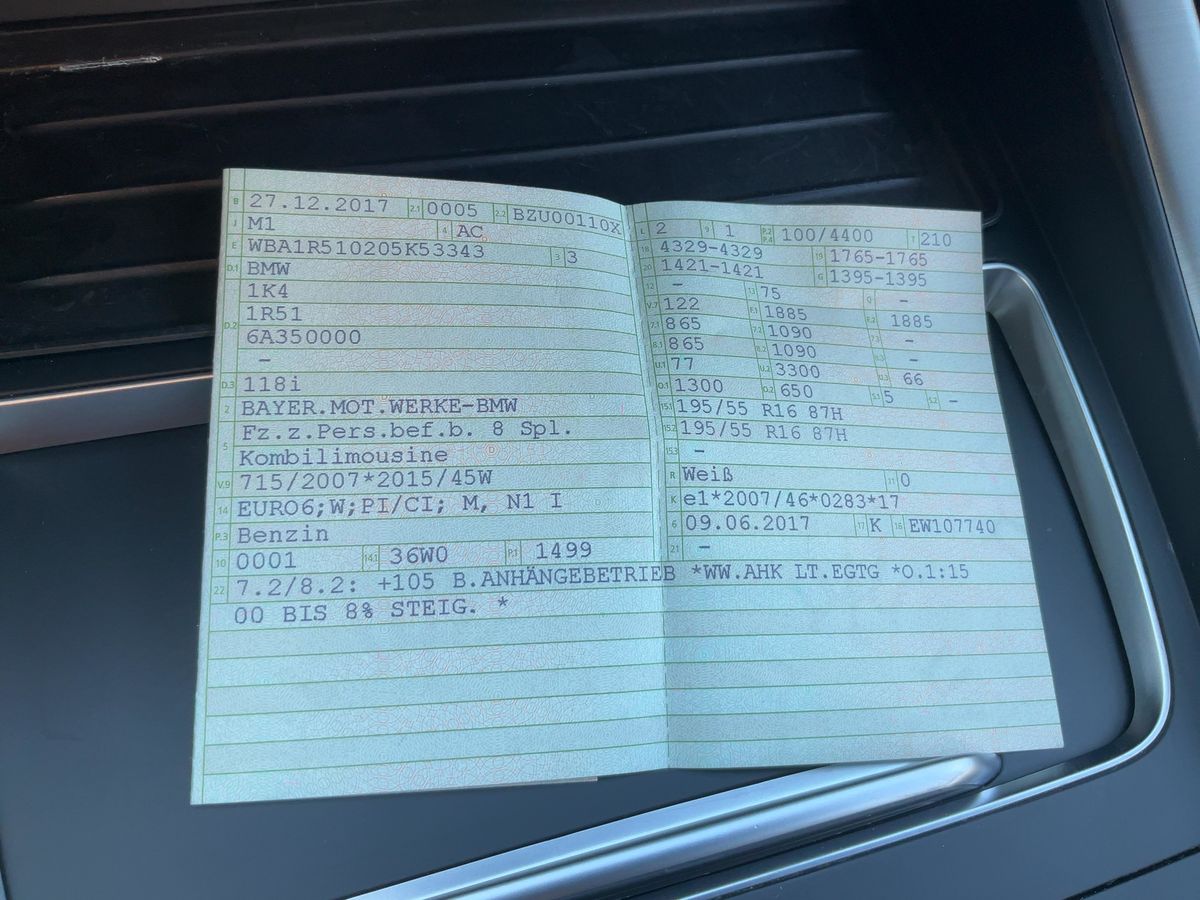 B 27.12.2017 2.1 0005 2.2 BZU00110X
J M1 4 AC
E WBA1R510205K53343 3 3
D.1 BMW
1K4
D.2 1R51
6A350000
–
D.3 118i
2 BAYER.MOT.WERKE-BMW
5 Fz.z.Pers.bef.b. 8 Spl.
Kombilimousine
V.9 715/2007*2015/45W
14 EURO6;W;PI/CI; M, N1 I
P.3 Benzin
10 0001 14.1 36W0 P.1 1499
L 2 9 1 P.2 P.4 100/4400 T 210
18 4329-4329 19 1765-1765
20 1421-1421 G 1395-1395
12 – 13 75 Q –
V.7 122 F.1 1885 F.2 1885
7.1 865 7.2 1090 7.3 –
8.1 865 8.2 1090 8.3 –
U.1 77 U.2 3300 U.3 66
O.1 1300 O.2 650 S.1 5 S.2 –
15.1 195/55 R16 87H
15.2 195/55 R16 87H
15.3 –
R Weiß 11 0
K e1*2007/46*0283*17
6 09.06.2017 17 K 16 EW107740
21 –
22 7.2/8.2: +105 B.ANHÄNGEBETRIEB *WW.AHK LT.EGTG *O.1:15
00 BIS 8% STEIG. *